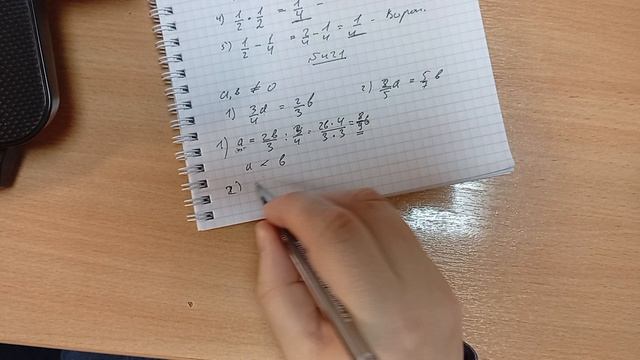 4) 1/2 · 1/2 = 1/4 -
5) 1/2 - 1/4 = 2/4 - 1/4 = 1/4 -
№421
a, b ≠ 0
1) 3/4 a = 2/3 b
2) 8/5 a = 5/7 b
1) a = 2b/3 : 3/4 = 2b·4/3·3 = 8b/9
a < b
2)